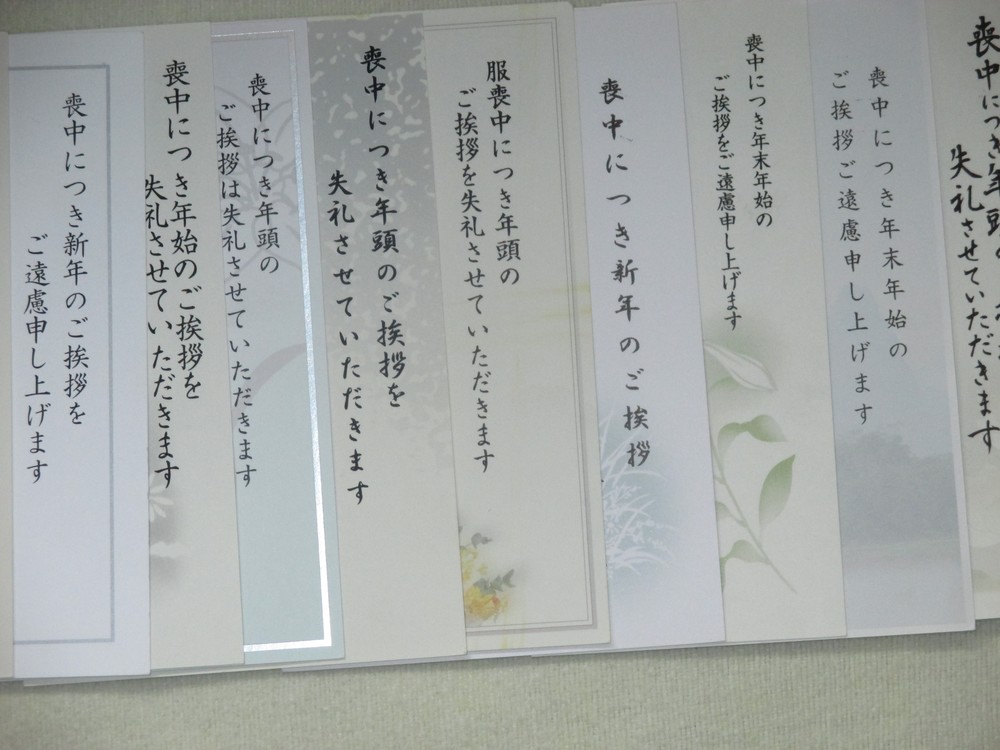 喪中につき年頭の
失礼させていただきます
喪中につき年末年始の
ご挨拶ご遠慮申し上げます
喪中につき年末年始の
ご挨拶をご遠慮申し上げます
喪中につき新年のご挨拶
服喪中につき年頭の
ご挨拶を失礼させていただきます
喪中につき年頭のご挨拶を
失礼させていただきます
喪中につき年頭の
ご挨拶は失礼させていただきます
喪中につき年始のご挨拶を
失礼させていただきます
喪中につき新年のご挨拶を
ご遠慮申し上げます